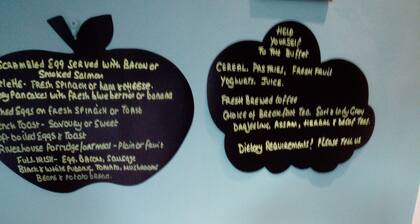 Scrambled Egg served with Bacon or
Smoked Salmon
Fresh Spinach or Ham & Cheese
Pancakes with fresh blueberries or banana
Eggs on fresh Spinach or Toast
Toast - Savoury or Sweet
Boiled Eggs & Toast
Porridge/oatmeal - Plain or fruit
Full Irish - Egg, Bacon, Sausage
Black & White Pudding, Tomato, Mushrooms
Beans & Potato Bread.
Help
Yourself
To The Buffet
Cereal, Pastries, Fresh Fruit
Yoghurts, Juice.
Fresh Brewed Coffee
Choice of Breakfast Tea, Earl & Lady Grey
Darjeeling, Assam, Herbal & Decaf Teas.
Dietary Requirements! Please tell us